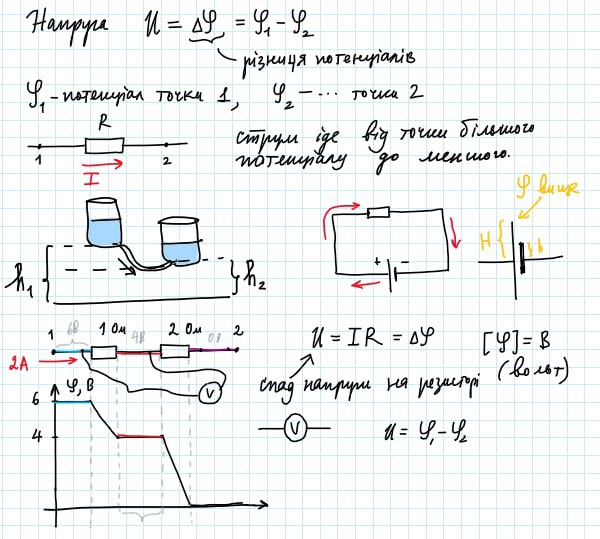 Напруга U = Δφ = φ₁ - φ₂
різниця потенціалів
φ₁ - потенціал точки 1, φ₂ - ... точки 2
R
1 2
I
струм іде від точки більшого
потенціалу до меншого.
φ вище
H
+ -
h₁ h₂
1 6В 1 Ом 4В 2 Ом 0В 2
2A
V
U = IR = Δφ [φ] = В
(вольт)
спад напруги на резисторі
φ, В
6
4
V U = φ₁ - φ₂